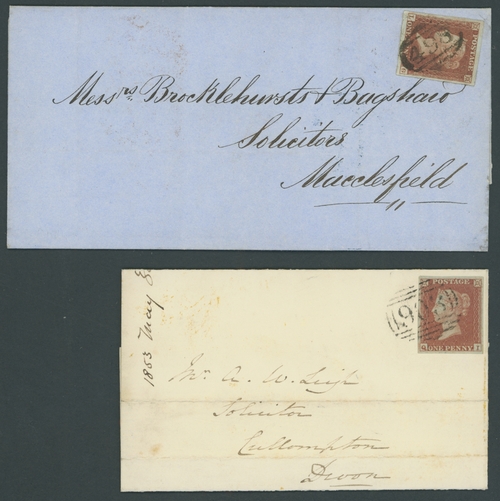 POSTAGE
Messrs. Brocklehursts & Bagshaw
Solicitors
Macclesfield
1853 May
POSTAGE
ONE PENNY
Mr. A. W. Leigh
Solicitor
Cullompton
Devon